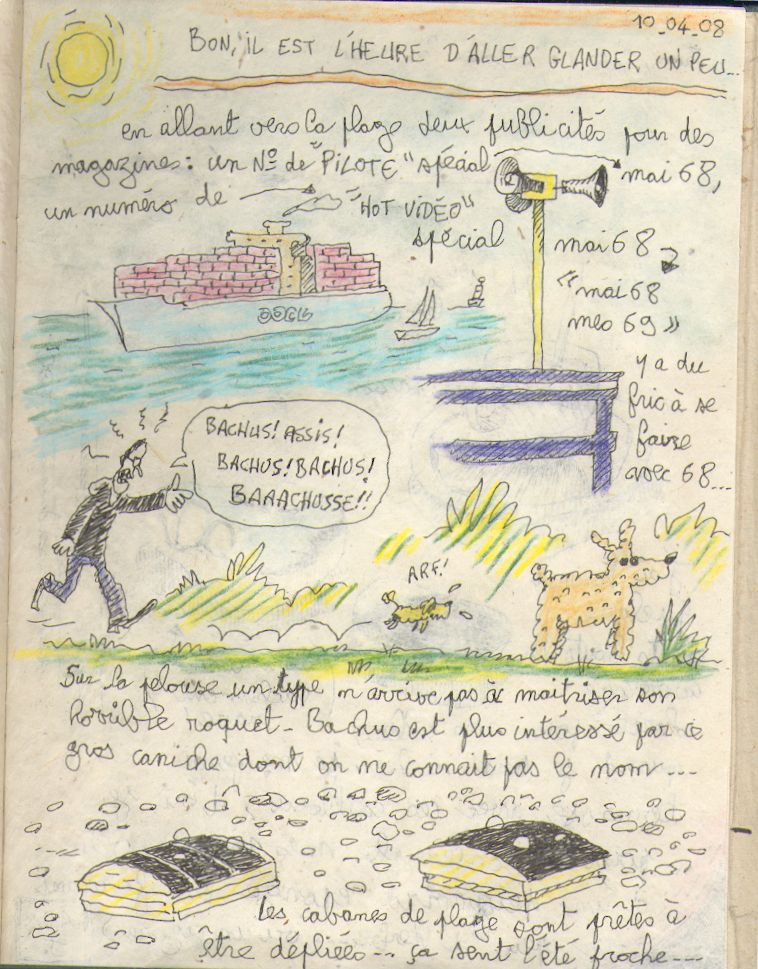 10_04_08
BON, IL EST L'HEURE D'ALLER GLANDER UN PEU...
en allant vers la plage deux publicités pour des
magazines: un N° de "PILOTE" spécial mai 68,
un numéro de "HOT VIDÉO"
spécial mai 68
"mai 68
mes 69"
y a du
fric à se
faire
avec 68...
BACHUS! ASSIS!
BACHUS! BACHUS!
BAAACHUSSE!!
ARF!
Sur la pelouse un type n'arrive pas à maitriser son
horrible roquet - Bachus est plus intéressé par ce
gros caniche dont on ne connait pas le nom...
les cabanes de plage sont prêtes à
être dépliées... ça sent l'été proche...